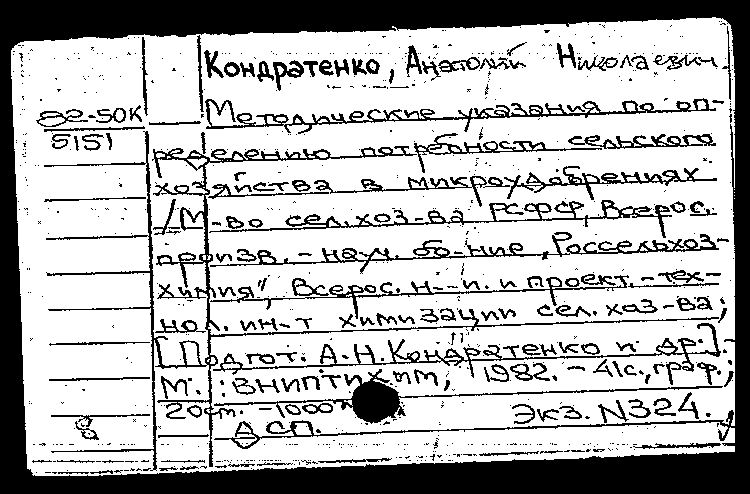 Кондратенко, Анатолий Николаевич.
82-50К
5151
Методические указания по оп-
ределению потребности сельского
хозяйства в микроудобрениях
/М-во сел.хоз-ва РСФСР, Всерос.
произв.-науч. об-ние „Россельхоз-
химия", Всерос. н.-и. и проект.-тех-
нол. ин-т химизации сел. хоз-ва;
[Подгот. А.Н.Кондратенко и др.].-
М.: ВНИПТИХИМ, 1982. - 41с., граф.;
20см. - 1000
ДСП. Экз. N324.